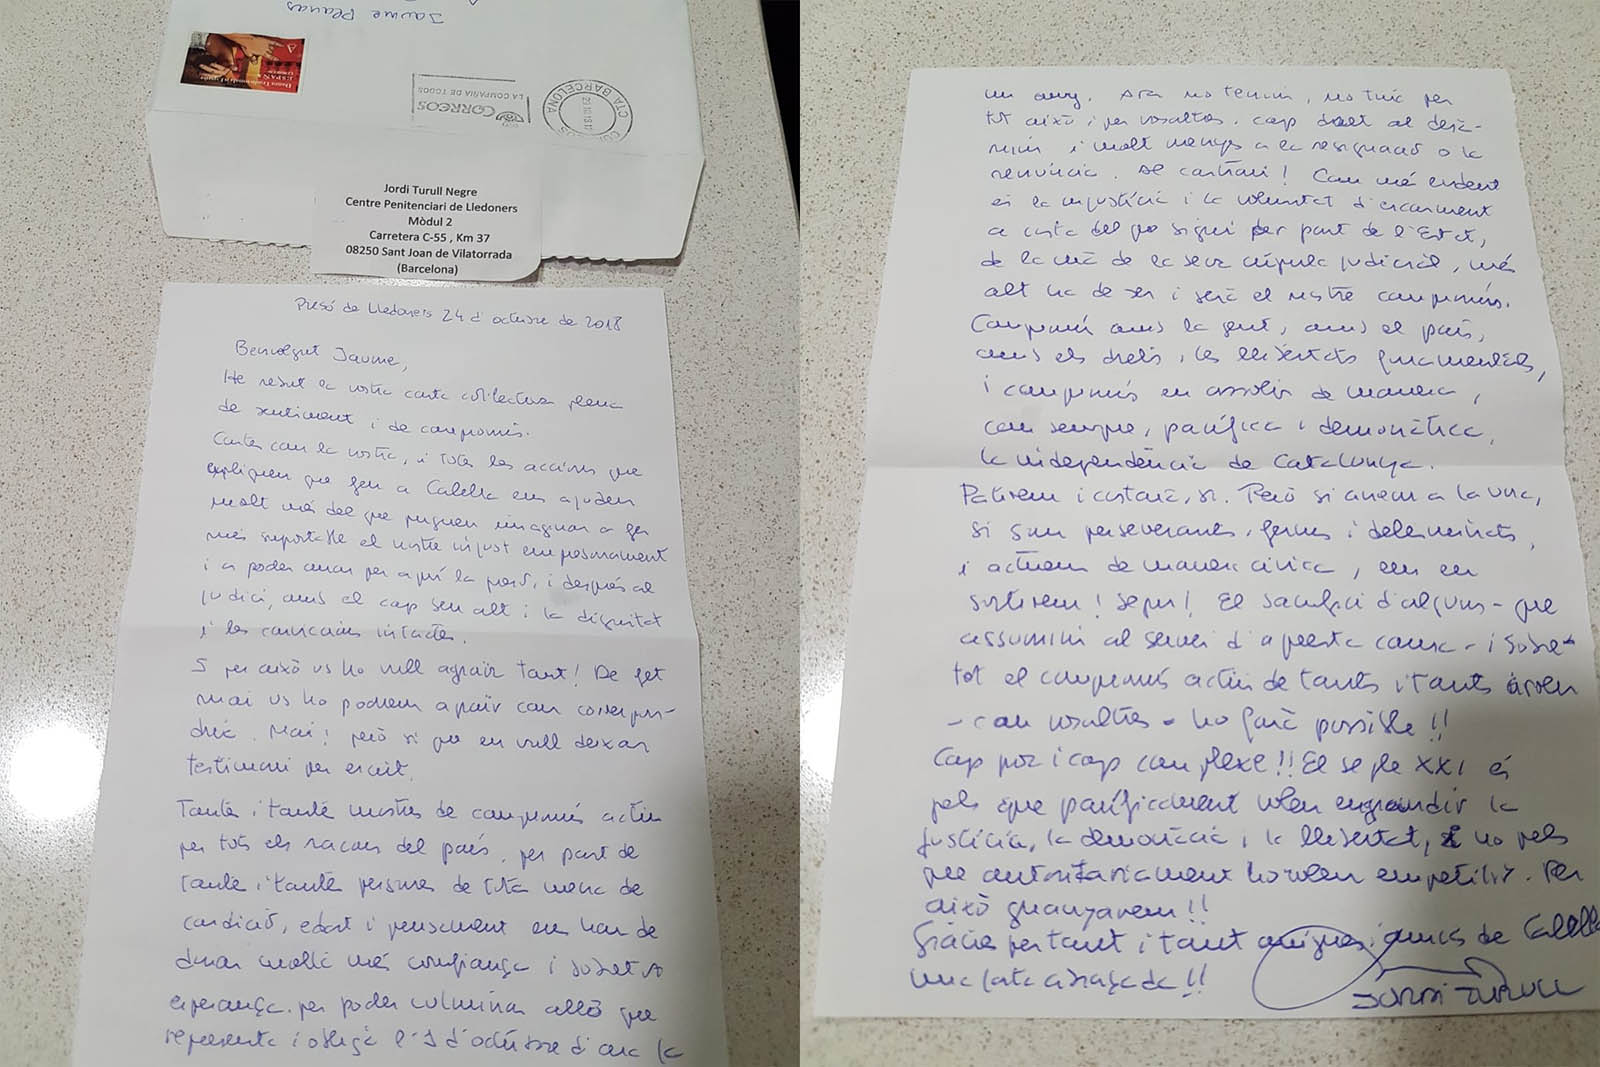 Jaume Planas
CORREOS
LA COMPAÑIA DE TODOS
CTA BARCELONA
ESPAÑA
Jordi Turull Negre
Centre Penitenciari de Lledoners
Mòdul 2
Carretera C-55 , Km 37
08250 Sant Joan de Vilatorrada
(Barcelona)
Presó de Lledoners 24 d'octubre de 2018
Benvolgut Jaume,
He rebut la vostra carta col·lectiva plena
de sentiment i de compromís.
Cartes com la vostra, i totes les accions que
expliquen que feu a Calella ens ajuden
molt més del que pugueu imaginar a fer
més suportable el nostre injust empresonament
i a poder anar per aquí la presó, i després al
judici, amb el cap ben alt i la dignitat
i les conviccions intactes.
I per això us ho vull agrair tant! De fet
mai us ho podrem agrair com correspon-
dria. Mai! però si que en vull deixar
testimoni per escrit.
Tantes i tantes mostres de compromís actiu
per tots els racons del país, per part de
tantes i tantes persones de tota mena de
condició, edat i pensament ens han de
donar molta més confiança i sobretot
esperança per poder culminar allò que
representa i obliga l'1 d'octubre d'ara fa
un any. Ara no tenim, no tinc per
tot això i per vosaltres, cap dret al desà-
nim i molt menys a la resignació o la
renúncia. Al contrari! Com més evident
és la injustícia i la voluntat d'escarment
a costa del que sigui per part de l'Estat,
de la mà de la seva cúpula judicial, més
alt ha de ser i serà el nostre compromís.
Compromís amb la gent, amb el país,
amb els drets i les llibertats fonamentals,
i compromís en assolir de manera,
com sempre, pacífica i democràtica,
la independència de Catalunya.
Patirem i costarà, sí. Però si anem a la una,
si som perseverants, ferms i determinats,
i actuem de manera cívica, ens en
sortirem! Segur! El sacrifici d'alguns - que
assumim al servei d'aquesta causa - i sobre-
tot el compromís actiu de tants i tants arreu
- com vosaltres - ho farà possible!!
Cap por i cap complexe!! El segle XXI és
pels que pacíficament volen engrandir la
justícia, la democràcia i la llibertat, no pels
que autoritàriament ho volen empetitir. Per
això guanyarem!!
Gràcies per tant i tant amigues i amics de Calella
Una forta abraçada!!
Jordi Turull